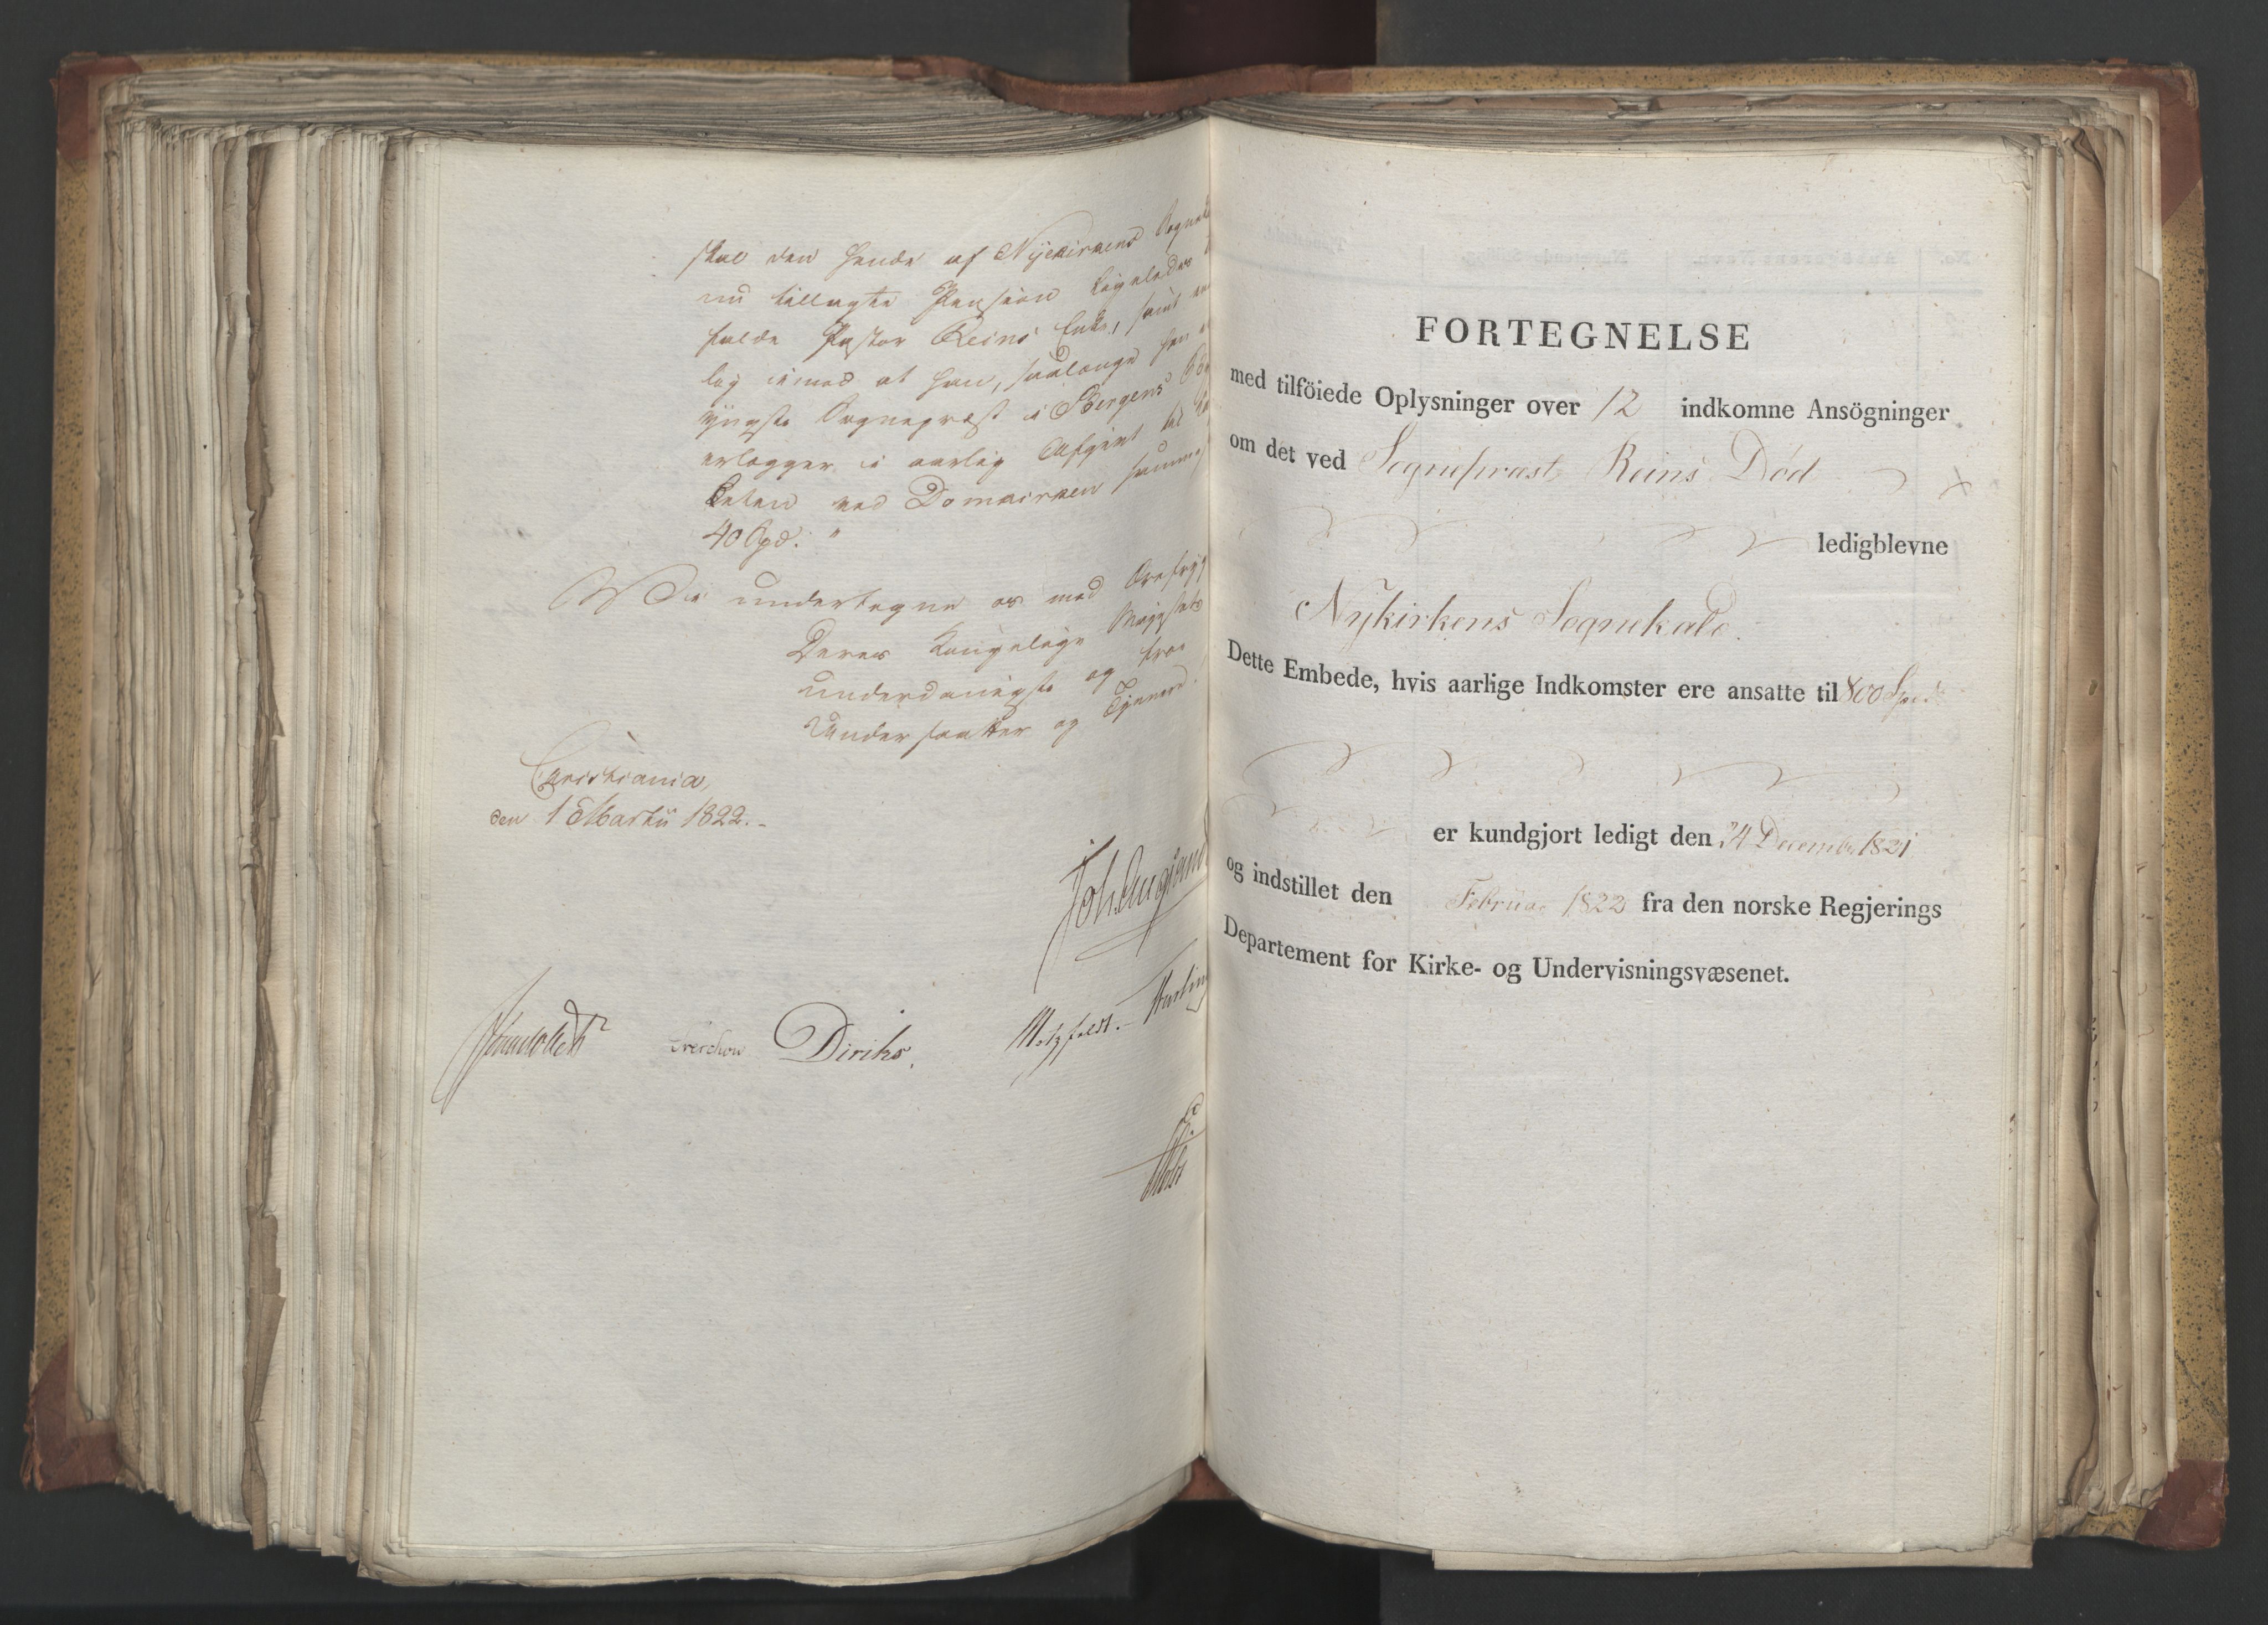 skal den hende af Nyekirkens Sognek
nu tillagte Pension ligeledes
falde Pastor Reins Enke, samt
lig imod at han, saalænge han
yngste Sognepræst i Bergens
erlægger i aarlig Afgivt til
ved Domkirken
40 Spd. "
Vi undertegne os med Ærefrygt
Deres Kongelige Majestæts
underdanigste og troe
Undersaatter og Tjenere.
Christiania,
den 1 Martii 1822.
Treschow Diriks. Motzfeldt.
FORTEGNELSE
med tilföiede Oplysninger over 12 indkomne Ansögninger
om det ved Sognepræst Reins Död
ledigblevne
Nykirkens Sognekald.
Dette Embede, hvis aarlige Indkomster ere ansatte til 800 Spd.
er kundgjort ledigt den 24 December 1821
og indstillet den Februar 1822 fra den norske Regjerings
Departement for Kirke- og Undervisningsvæsenet.